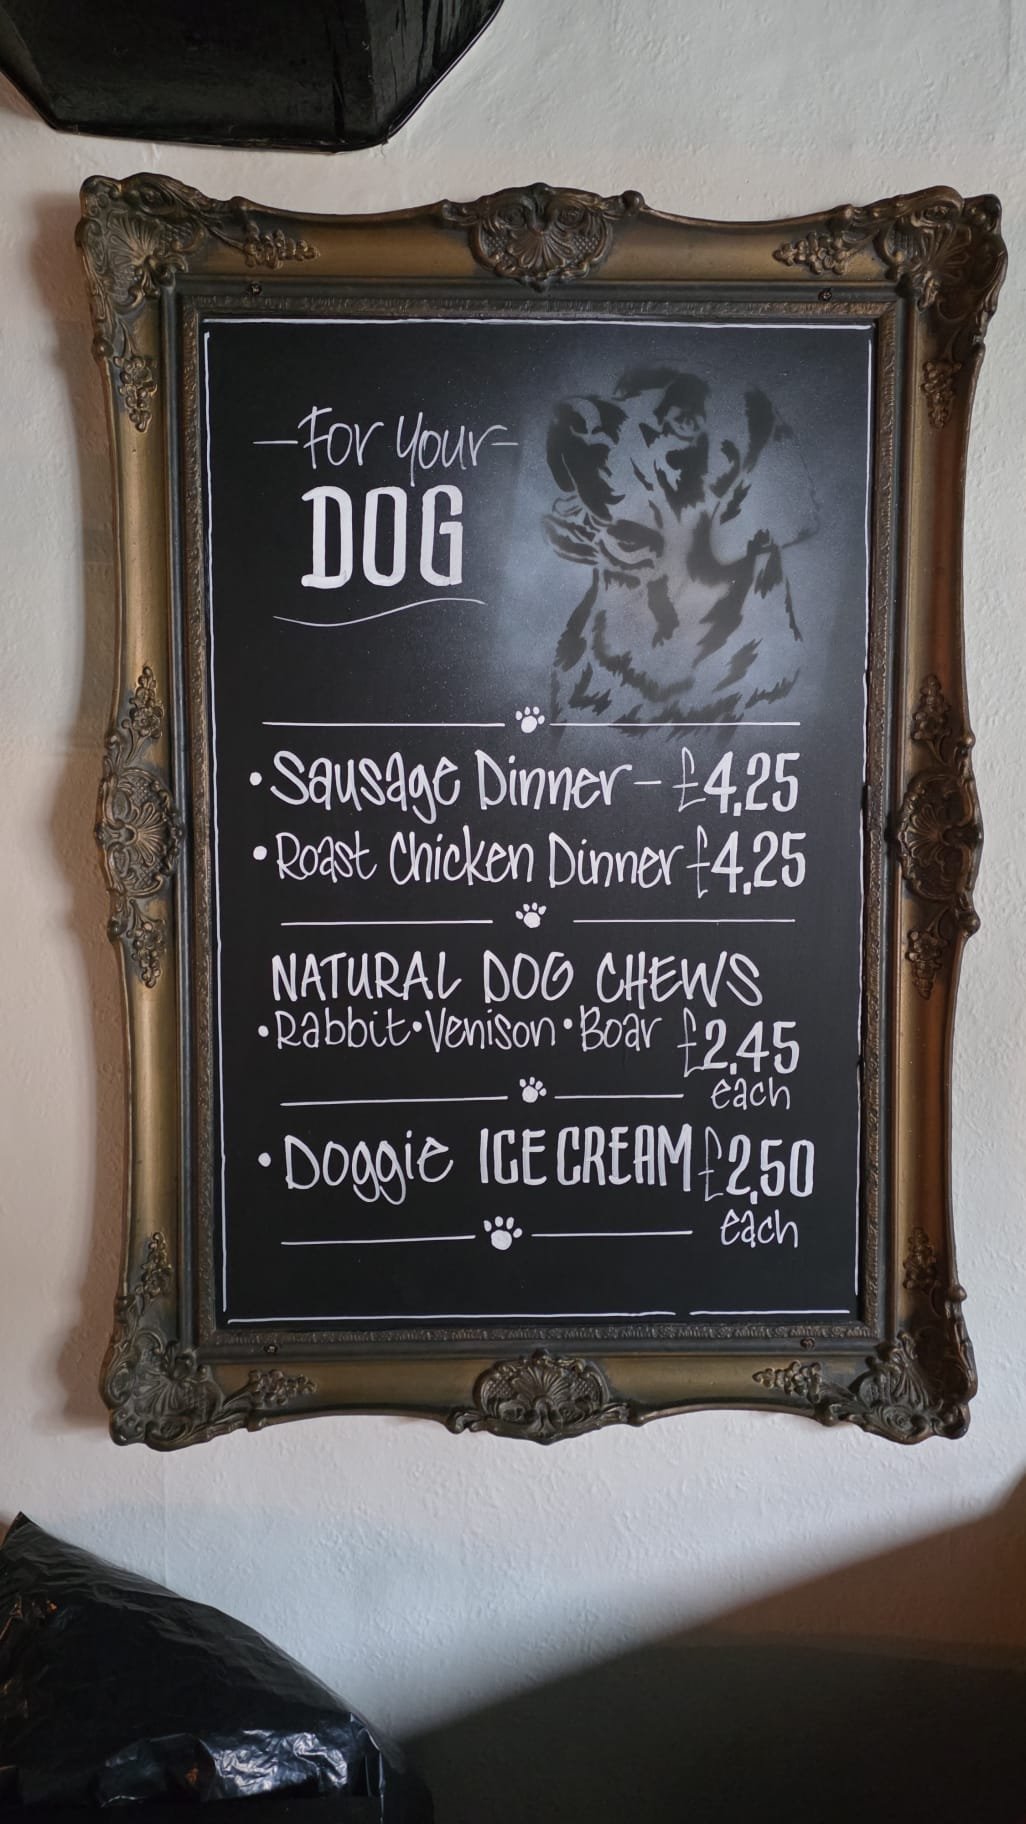 –For Your–
DOG
• Sausage Dinner – £4.25
• Roast Chicken Dinner £4.25
NATURAL DOG CHEWS
• Rabbit • Venison • Boar £2.45
each
• Doggie ICE CREAM £2.50
each